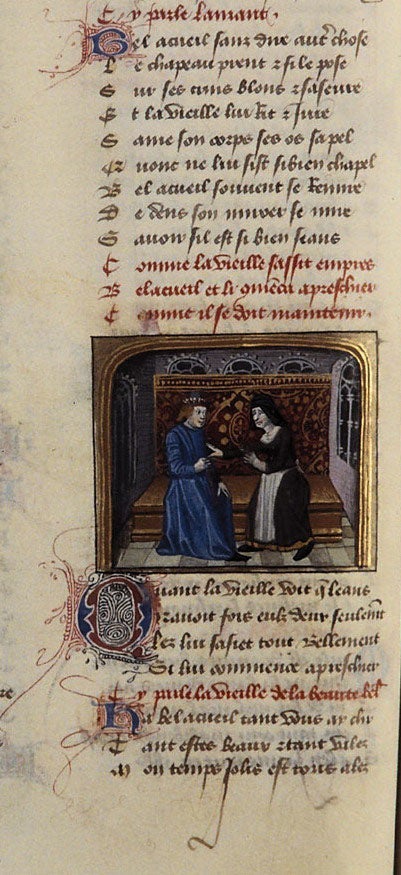 Cy parle lamant.
Bel acueil sanz dire autre chose
Le chapeau prent et si le pose
Sur ses crins blons et sasseure
Et la vieille lui Rit et Jure
Same son corps ses os sa pel
Quonc ne lui sist si bien chapel
Bel acueil souvent se Remire
Dedens son miroer se mire
Savoir sil est si bien seans
Comme la vieille sassit empres
Belacueil et li preschier
Comme il se doit maintenir.
Quant la vieille voit q leans
Navoit fors eulz deux seulemt
lez lui sasiet tout Bellement
Si lui commence a preschier
Cy parle la vieille de la beaute
Ha bel acueil tant vous ay chier
Tant estes beaux et tant valez
Mon temps Jolis est tous alez